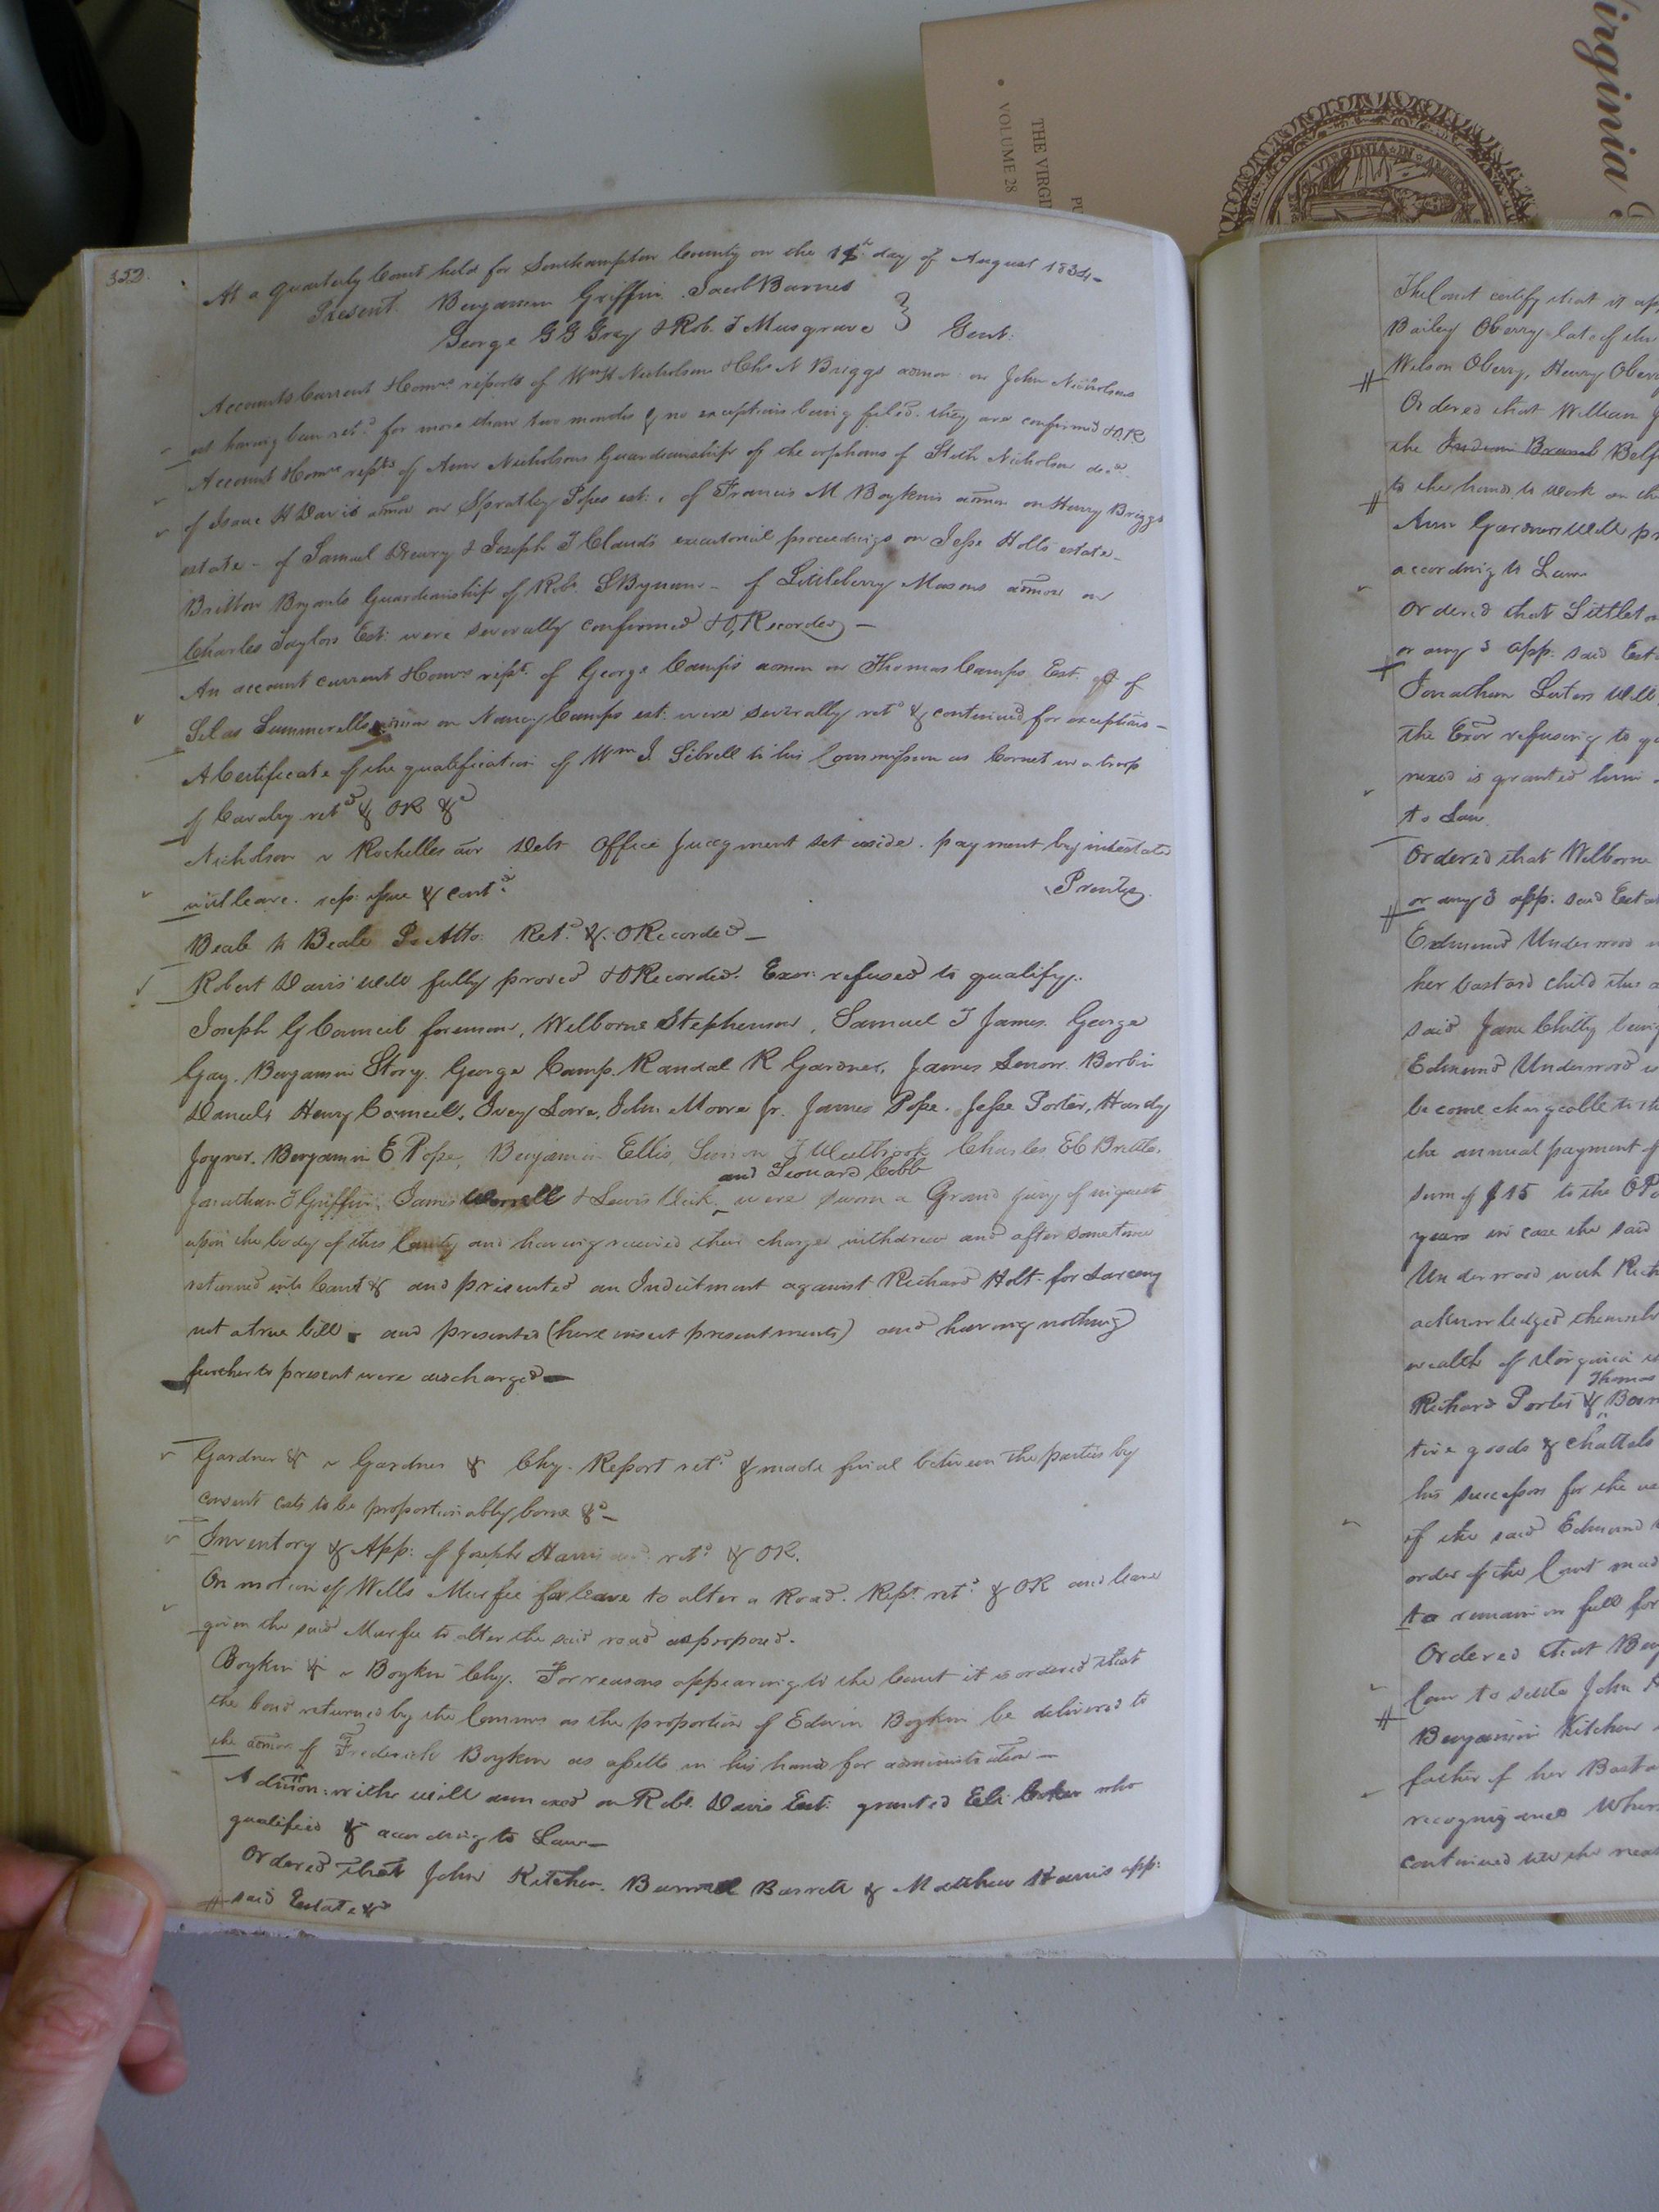 332.
At a Quarterly Court held for Southampton County on the 18th day of August 1834-
Present. Benjamin Griffin. Jacob Barnes
George G G Gray & Rob. T Musgrave } Gent:
Accounts Current & Comrs reports of Wm H Nicholson & Chs N Briggs admon on John Nicholsons
est having been retd for more than two months & no exceptions being filed. they are confirmed & OR
Account & Comrs repts of Ann Nicholsons Guardianship of the orphans of Steth Nicholson decd.
of Isaac H Davis admon on Spratley Popes est: of Francis M Boykins admon on Henry Briggs
estate - of Samuel Drewry & Joseph T Claud's executorial proceedings on Jesse Holts estate-
Britton Bryants Guardianship of Rob. S Bynum - of Littleberry Masons admon on
Charles Taylors Est: were severally confirmed & O, Recorded -
An account current & Comrs rept. of George Camp's admon on Thomas Camps Est. of
Silas Summerells admon on Nancy Camps est: were severally retd & continued for exceptions -
A Certificate of the qualification of Wm J. Sebrell to his Commission as Cornet in a troop
of Cavalry retd & OR &c
Nicholson v Rochelles aor Debt Office Judgment set aside. payment by intestate
with leave. rep: issue & contd. Prentis.
Beale to Beale Po Atto. Retd. & ORecorded -
Robert Davis' Will fully proved & ORecorded. Exor. refused to qualify.
Joseph G Council foreman, Welborne Stephenson, Samuel T James. George
Gay. Benjamin Story. George Camp. Randal R Gardner, James Simon Borbin
Daniels Henry Council, Ivey Lowe, John Moore Jr. James Pope. Jesse Porter, Hardy
Joyner. Benjamin E Pope, Benjamin Ellis, Simon T Westbrook Charles E C Brittle.
and Leonard Cobb
Jonathan T Griffin, James Worrell & Lewis Vick ^ were sworn a Grand jury of inquest
upon the body of this County and having received their charge withdrew and after sometime
returned into Court & and presented an Indictment against Richard Holt for Larceny
not a true bill. and presented (here insert presentments) and having nothing
further to present were discharged -
Gardner & v Gardner & Chy. Report retd. & made final between the parties by
consent costs to be proportionably borne &c -
Inventory & App: of Joseph Harris retd. & OR.
On motion of Wells Murfee for leave to alter a Road. Rept. retd. & OR and leave
given the said Murfee to alter the said road as proposed.
Boykin & v Boykin Chy. For reasons appearing to the Court it is ordered that
the bond returned by the Commrs as the proportion of Edwin Boykin be delivered to
the admor. of Frederick Boykin as assetts in his hand for administration -
Admon: with the will annexed on Robt. Davis Est: granted Eli who
qualified & according to Law -
Ordered that John Kitchen. Burwell Barrett & Matthew Harris app:
said Estate &c
The Court certify that it
Bailey Oberry late of the
Wilson Oberry, Henry
Ordered that William
the Indian Branch
to the hands to work on
Ann Gardners Will
according to Law
Ordered that
or any 3 app. said
Jonathan Will
the Exor refusing to
nexed is granted him
to Law
Ordered that Welborne
or any 3 app. said
Edmund Underwood
her bastard child
said Jane Chitty
Edmund Underwood
become chargeable
the annual payment of
sum of $15 to the
years in case the said
Underwood with
acknowledged
wealth of Virginia
Thomas
Richard Porter &
tive goods & chattels
his successors for the
of the said Edmund
order of the Court
to remain in full
Ordered that
Court to John
Benjamin Kitchen
father of her
recognizance
continued till the next
Virginia
THE
VOLUME 28
VIRGINIA IN